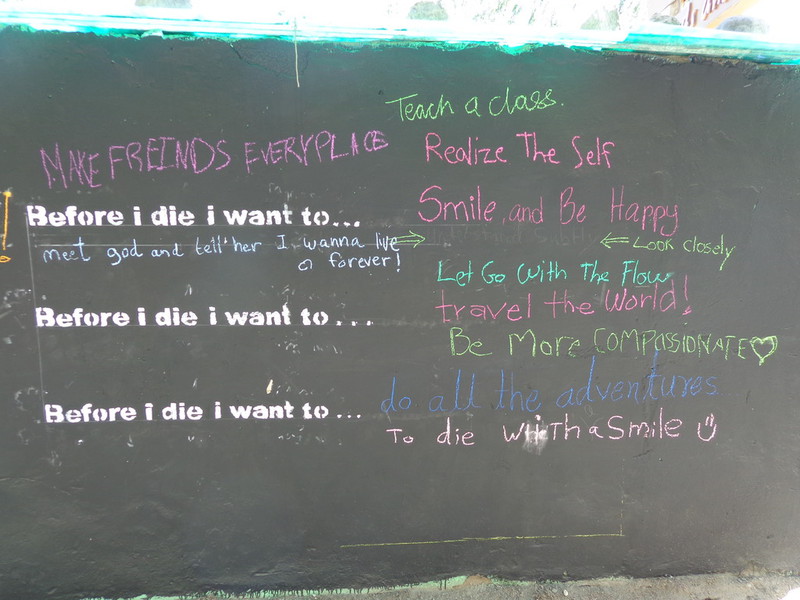 Teach a class.
MAKE FREINDS EVERYPLACE
Realize The Self
Before i die i want to...
Smile, and Be Happy
meet god and tell her I wanna live
on forever!
Look closely
Let Go With The Flow
travel the World!
Before i die i want to...
Be More COMPASSIONATE
Before i die i want to...
do all the adventures
To die WHiTh a Smile